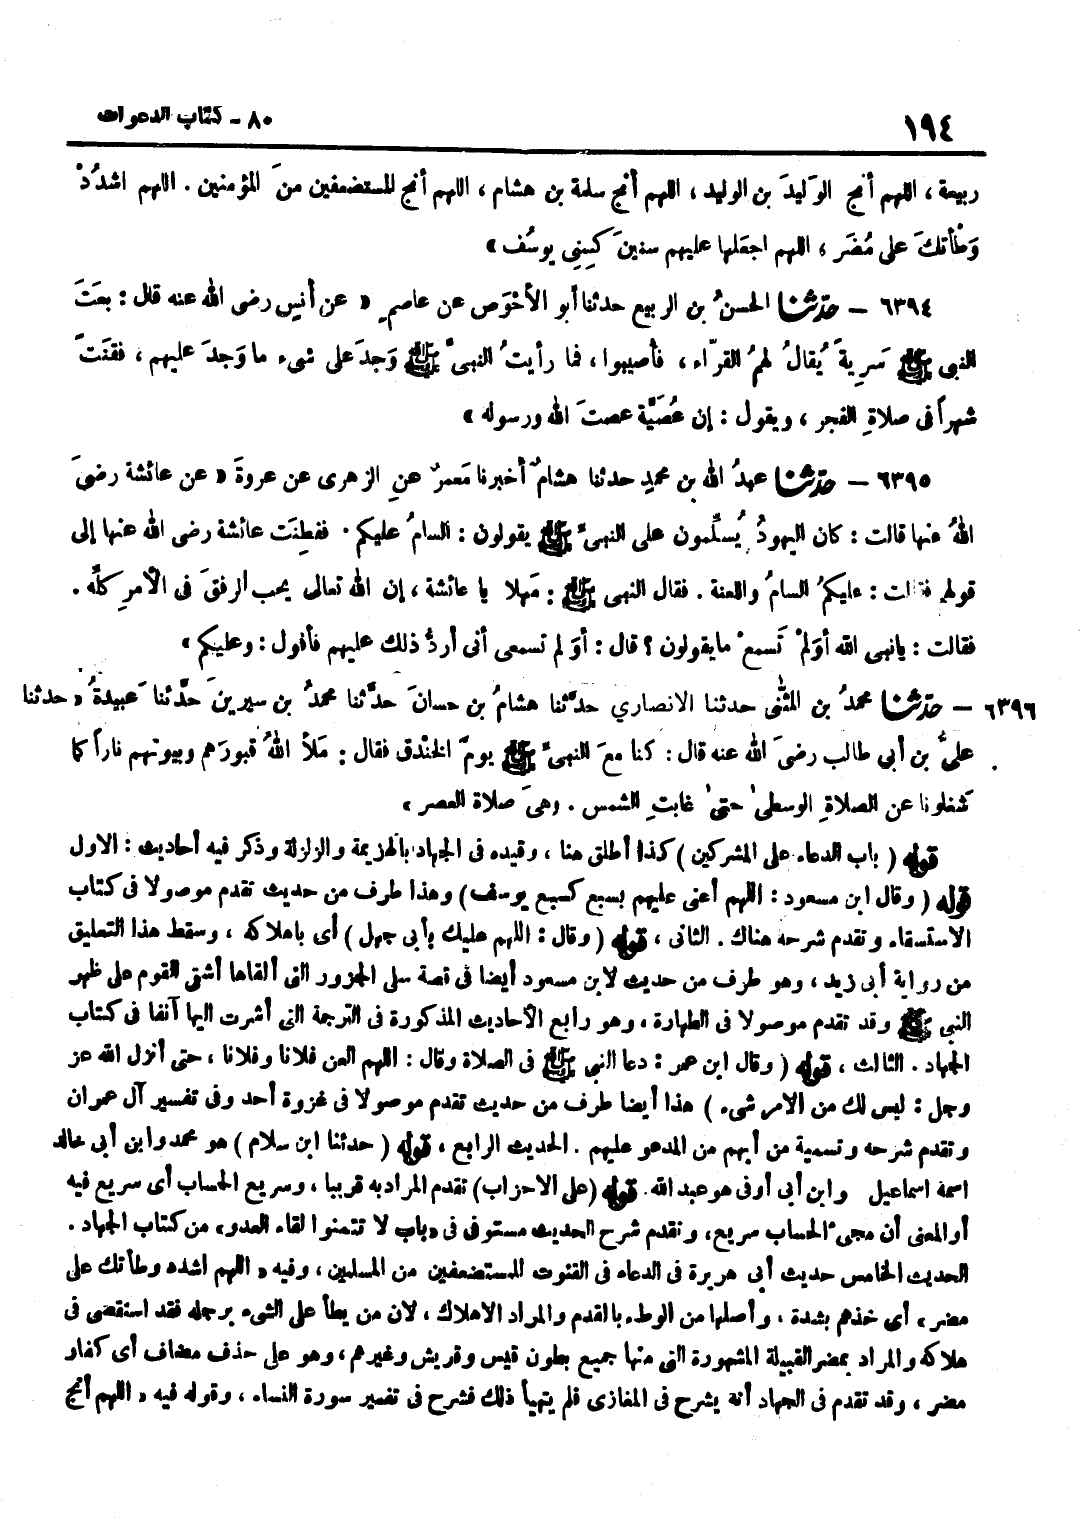 ١٩٤ ٨٠ - كتاب الدعوات
ربيعة ، اللهم أنج الوَليدَ بن الوليد ، اللهم أنج سلمة بن هشام ، اللهم أنج المستضعفين منَ المؤمنين . اللهم اشدُدْ
وَطْأتكَ على مُضَر ، اللهم اجعَلها عليهم سنينَ كسِنِى يوسُف »
٦٣٩٤ – حدّثنا الحسنُ بن الربيع حدثنا أبو الأحْوَص عن عاصمٍ « عن أنسٍ رضى الله عنه قال : بعَثَ
النبى ﷺ سَريةً يُقالُ لهمُ القرّاء ، فأصيبوا ، فما رأيتُ النبىَّ ﷺ وَجدَ على شىء ما وَجدَ عليهم ، فقنَتَ
شهراً فى صلاةِ الفجر ، ويقول : إن عُصَيَّة عصتَ الله ورسوله »
٦٣٩٥ – حدّثنا عبدُ الله بن محمدٍ حدثنا هشامٌ أخبرنا مَعمرٌ عنِ الزهرى عن عروةَ « عن عائشة رضىَ
اللهُ عنها قالت : كان اليهودُ يُسلِّمون على النبىِّ ﷺ يقولون : السامُ عليكم . ففطِنَت عائشة رضى الله عنها إلى
قولهم فقالت : عليكمُ السامُ واللعنة . فقال النبى ﷺ : مَهلا يا عائشة ، إن الله تعالى يحب الرفقَ فى الأمرِ كلِّه .
فقالت : يانبى الله أوَلمْ تَسمعْ مايقولون ؟ قال : أوَ لم تسمعى أنى أردُّ ذلك عليهم فأقول : وعليكم »
٦٣٩٦ – حدّثنا محمدُ بن المثنى حدثنا الانصاري حدَّثنا هشامُ بن حسانَ حدَّثنا محمدُ بن سيرينَ حدَّثنا عَبيدةُ « حدثنا
علىُّ بن أبي طالب رضىَ الله عنه قال : كنا معَ النبىِّ ﷺ يومَ الخندق فقال : مَلأ اللهُ قبورَهم وبيوتهم ناراً كما
شَغلونا عن الصلاةِ الوسطى حتى غابتِ الشمس . وهىَ صلاة العصر »
قوله ( باب الدعاء على المشركين ) كذا أطلق هنا ، وقيده فى الجهاد بالهزيمة والزلزلة وذكر فيه أحاديث : الاول
قوله ( وقال ابن مسعود : اللهم أعنى عليهم بسبع كسبع يوسف ) وهذا طرف من حديث تقدم موصولا فى كتاب
الاستسقاء وتقدم شرحه هناك . الثانى ، قوله ( وقال : اللهم عليك بأبى جهل ) أى باهلاكه ، وسقط هذا التعليق
من رواية أبى زيد ، وهو طرف من حديث لابن مسعود أيضا فى قصة سلى الجزور التى ألقاها أشقى القوم على ظهر
النبي ﷺ وقد تقدم موصولا فى الطهارة ، وهو رابع الأحاديث المذكورة فى الترجمة التى أشرت اليها آنفا فى كتاب
الجهاد . الثالث ، قوله ( وقال ابن عمر : دعا النبي ﷺ فى الصلاة وقال : اللهم العن فلانا وفلانا ، حتى أنزل الله عز
وجل : ليس لك من الامر شىء ) هذا أيضا طرف من حديث تقدم موصولا فى غزوة أحد وفى تفسير آل عمران
وتقدم شرحه وتسمية من أبهم من المدعو عليهم . الحديث الرابع ، قوله ( حدثنا ابن سلام ) هو محمد وابن أبى خالد
اسمه اسماعيل وابن أبى أوفى هو عبد الله . قوله (على الاحزاب) تقدم المراد به قريبا ، وسريع الحساب أى سريع فيه
أو المعنى أن مجىء الحساب سريع ، وتقدم شرح الحديث مستوفى فى « باب لا تتمنوا لقاء العدو » من كتاب الجهاد .
الحديث الخامس حديث أبي هريرة فى الدعاء فى القنوت للمستضعفين من المسلمين ، وفيه « اللهم اشدد وطأتك على
مضر » أى خذهم بشدة ، وأصلها من الوطء بالقدم والمراد الاهلاك ، لان من يطأ على الشىء برجله فقد استقصى فى
هلاكه والمراد بمضر القبيلة المشهورة التى منها جميع بطون قيس وقريش وغيرهم ، وهو على حذف مضاف أى كفار
مضر ، وقد تقدم فى الجهاد أنه يشرح فى المغازى فلم يتهيأ ذلك فشرح فى تفسير سورة النساء ، وقوله فيه « اللهم أنج